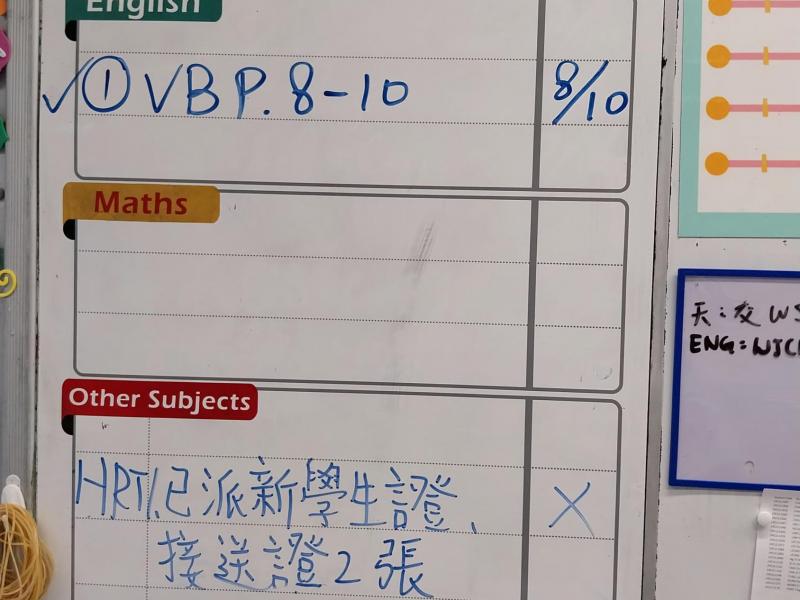 English
✓ ① VB P. 8-10 8/10
Maths
Other Subjects
HRT 已派新學生證、 X
接送證2張
天:交 WS
ENG: